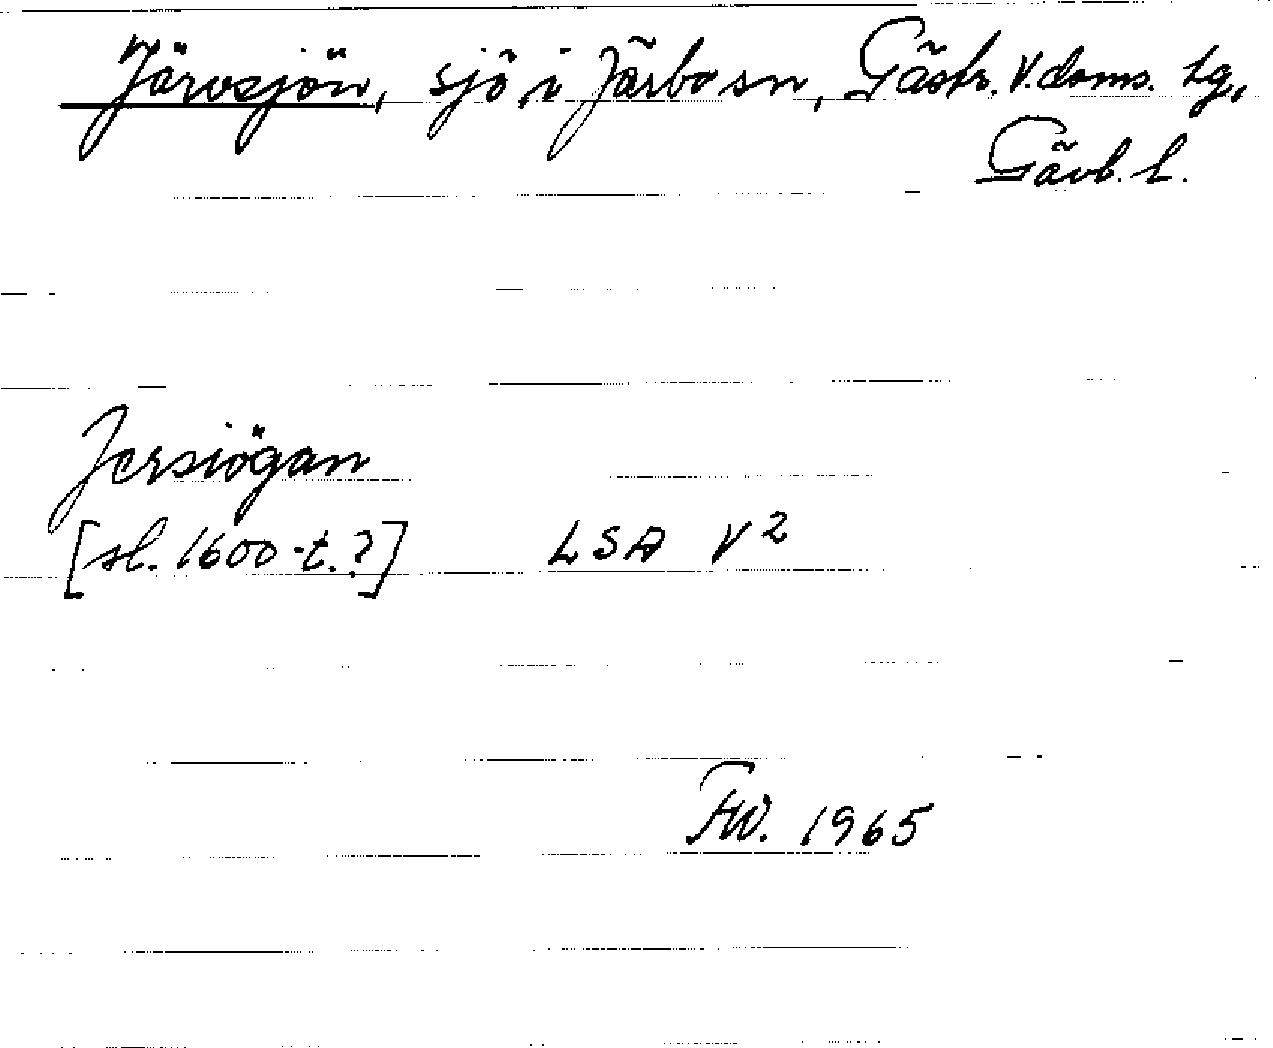 Järvsjön, sjö i Järbo sn, Gästr. V. doms. tg,
Gävb. l.
Jersiögan
[sl. 1600-t.?] LSA V²
FW. 1965